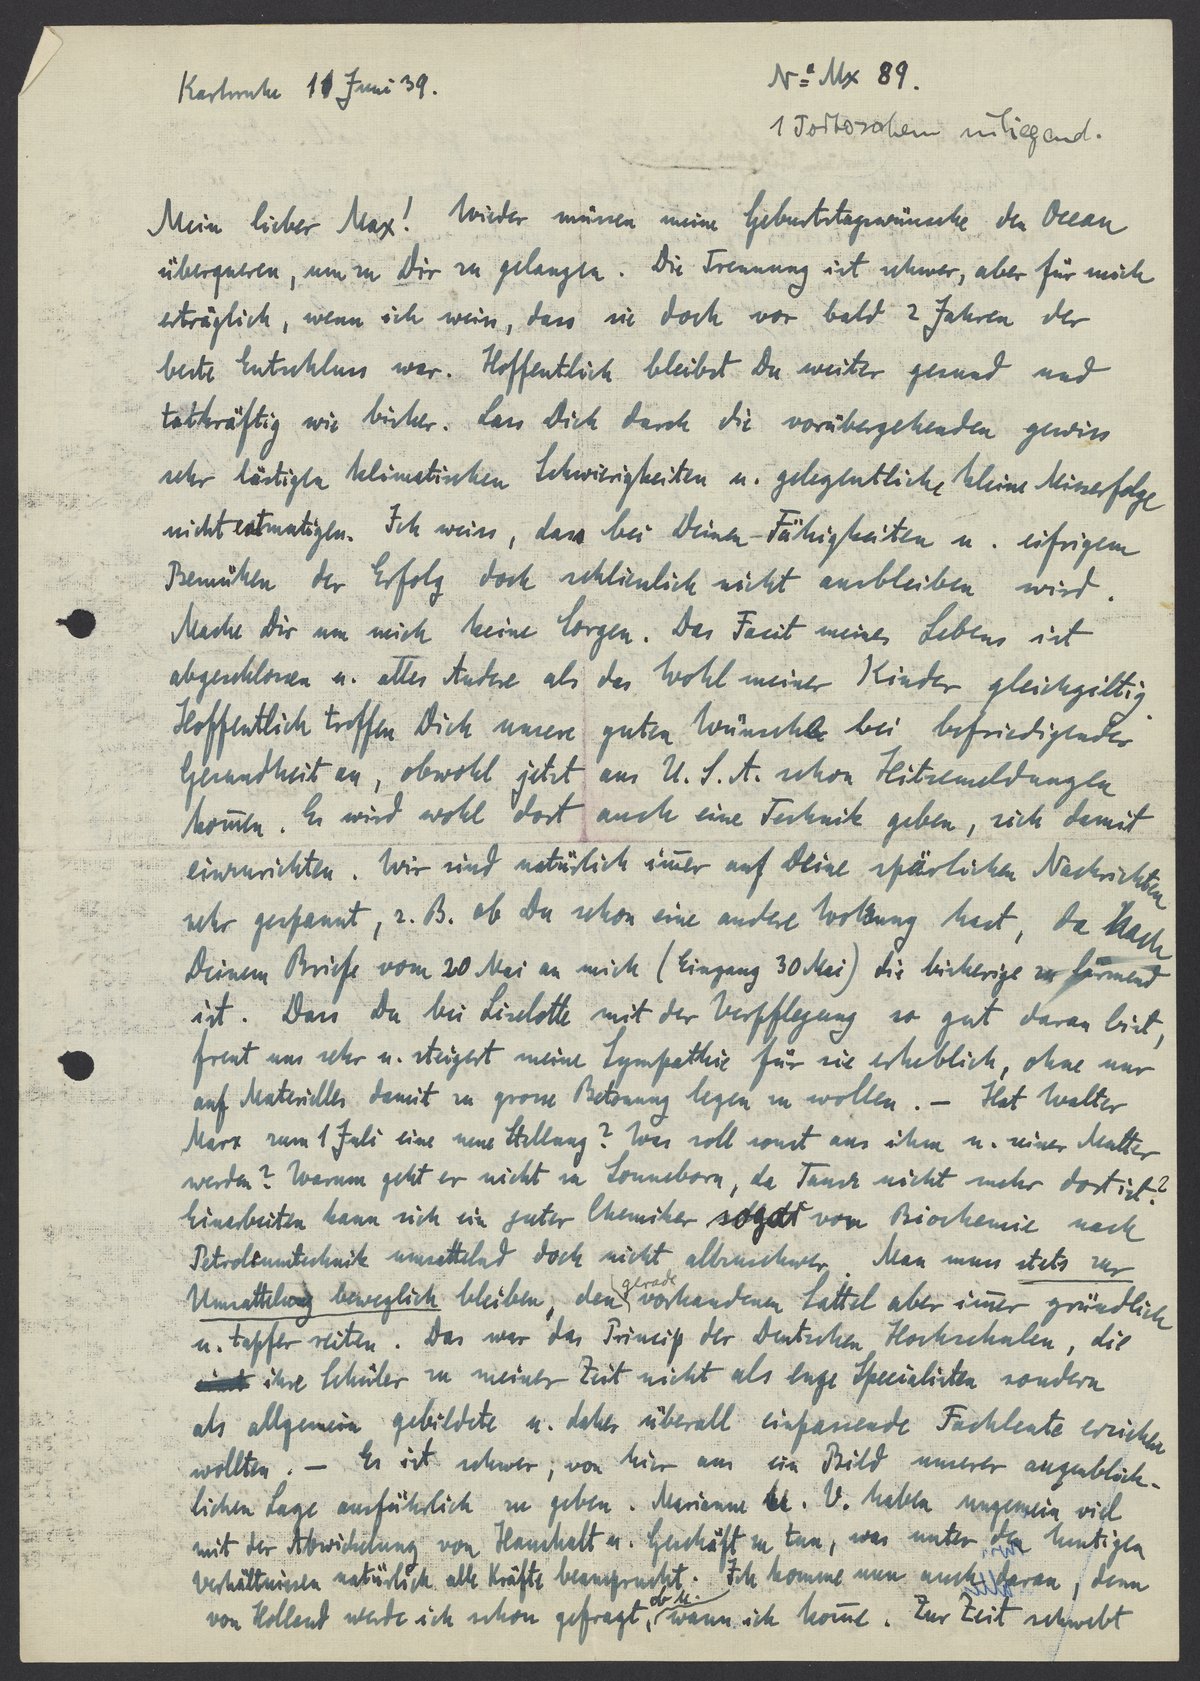 Karlsruhe 11 Juni 39.
No Mx 89.
1 inliegend.
Mein lieber Max! Wieder müssen meine Geburtstagswünsche den Ocean
überqueren, um zu Dir zu gelangen. Die Trennung ist schwer, aber für mich
erträglich, wenn ich weiss, dass sie doch vor bald 2 Jahren der
beste Entschluss war. Hoffentlich bleibst Du weiter gesund und
tatkräftig wie bisher. Lass Dich durch die vorübergehenden gewiss
sehr lästigen klimatischen Schwierigkeiten u. gelegentliche kleine Misserfolge
nicht entmutigen. Ich weiss, dass bei Deinen Fähigkeiten u. eifrigem
Bemühen der Erfolg doch schliesslich nicht ausbleiben wird.
Mache Dir um mich keine Sorgen. Das Facit meines Lebens ist
abgeschlossen u. alles Andere als das Wohl meiner Kinder gleichgiltig.
Hoffentlich treffen Dich unsere guten Wünsche bei befriedigender
Gesundheit an, obwohl jetzt aus U.S.A. schon Hitzemeldungen
kom̅en. Es wird wohl dort auch eine Technik geben, sich damit
einzurichten. Wir sind natürlich im̅er auf Deine spärlichen Nachrichten
sehr gespannt, z. B. ob Du schon eine andere Wohnung hast, da nach
Deinem Briefe vom 20 Mai an mich (Eingang 30 Mai) die bisherige zu lärmend
ist. Dass Du bei Liselotte mit der Verpflegung so gut daran bist,
freut uns sehr u. steigert meine Sympathie für sie erheblich, ohne nur
auf Materielles damit zu grosse Betonung legen zu wollen. — Hat Walter
Marx zum 1 Juli eine neue Stellung? Was soll sonst aus ihm u. seiner Mutter
werden? Warum geht er nicht zu Sonneborn, da nicht mehr dort ist?
Einarbeiten kann sich ein guter Chemiker von Biochemie nach
Petroleumtechnik umsattelnd doch nicht allzuschwer. Man muss stets zur
Umsattelung beweglich bleiben, den gerade vorhandenen Sattel aber im̅er gründlich
u. tapfer reiten. Das war das Princip der Deutschen Hochschulen, die
ihre Schüler zu meiner Zeit nicht als enge Specialisten sondern
als allgemein gebildete u. daher überall einpassende Fachleute erziehen
wollten. — Es ist schwer, von hier aus ein Bild unserer augenblick-
lichen Lage ausführlich zu geben. Marianne u. V. haben ungemein viel
mit der Abwickelung von Haushalt u. Geschäft zu tun, was unter den heutigen
Verhältnissen natürlich alle Kräfte beansprucht. Ich komme nun auch daran, denn
von Holland werde ich schon gefragt, ob u. wann ich kom̅e. Zur Zeit schwebt